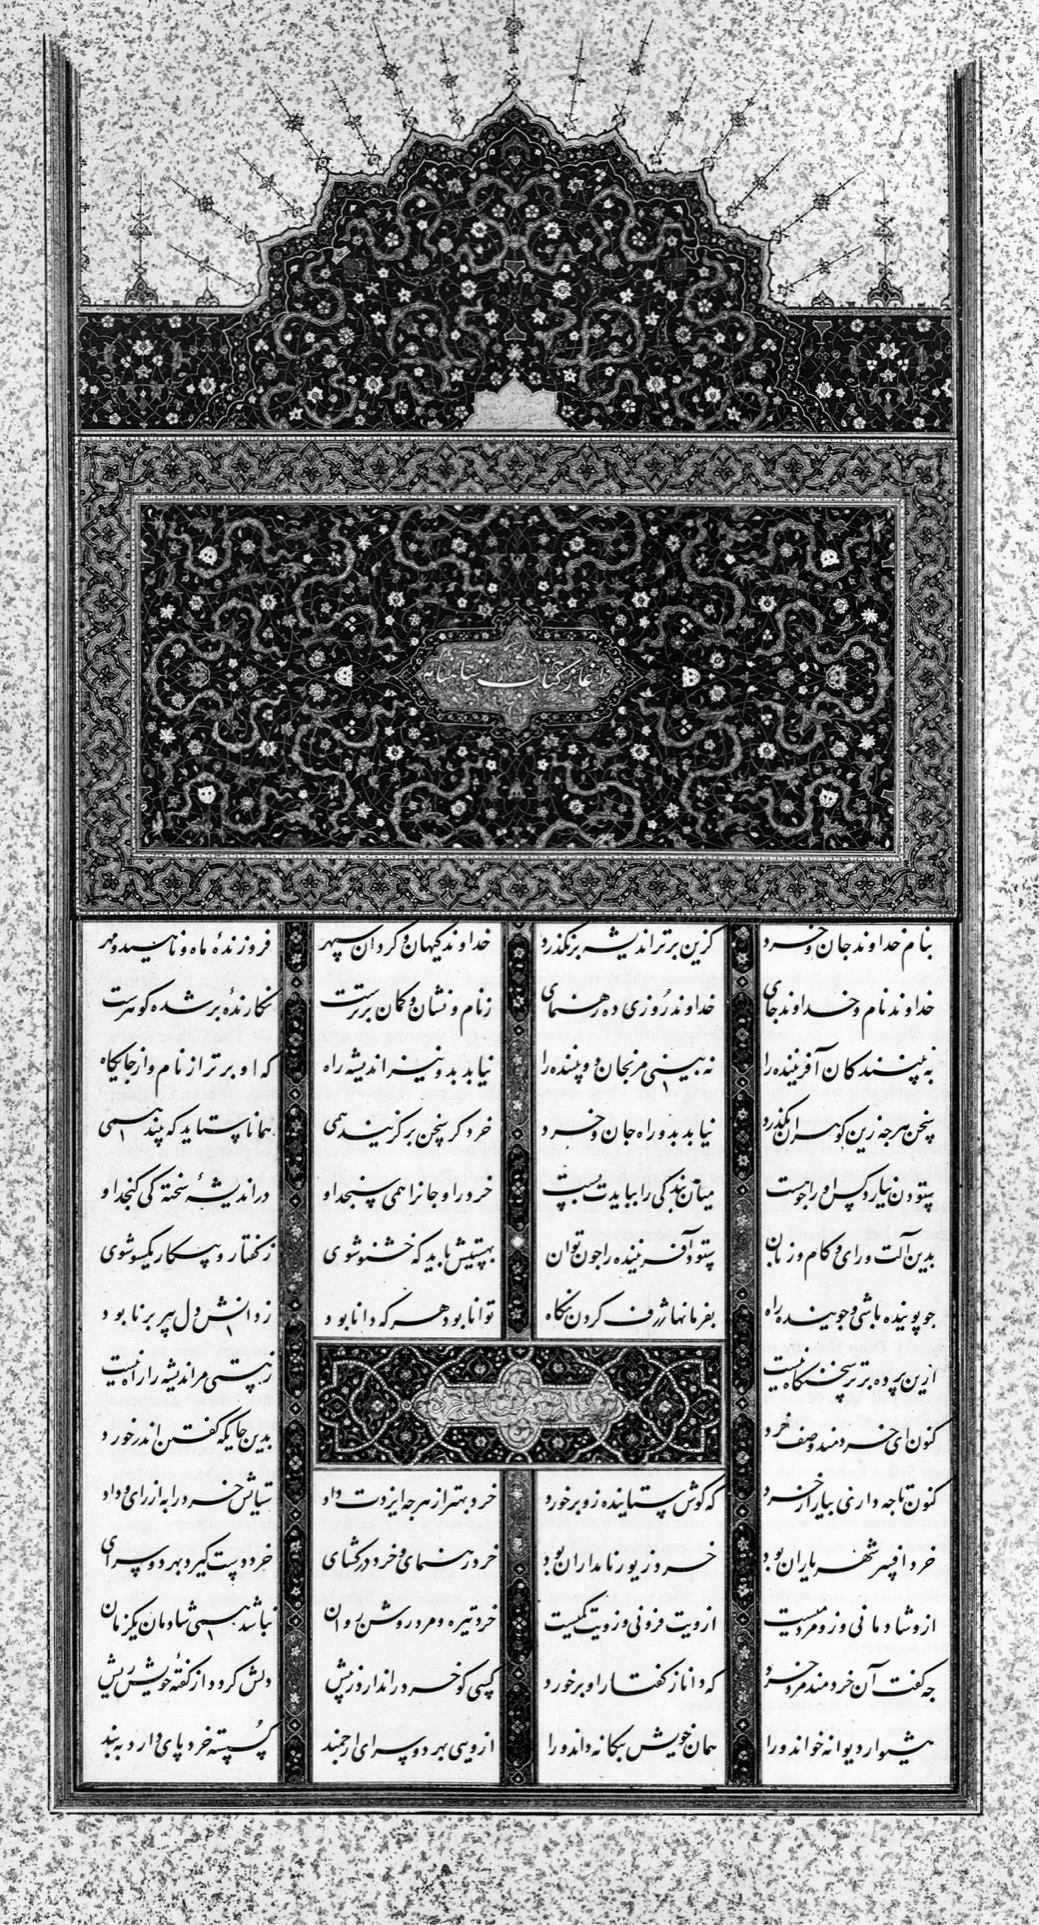 آغاز کتاب شاهنامه
بنام خداوند جان و خرد کزین برتر اندیشه برنکذرد خداوند کیهان و کردان سپهر فروزندهٔ ماه و ناهید و مهر
خداوند نام و خداوند جای خداوند روزی ده رهنمای زنام و نشان و کمان برترست نکارندهٔ بر شده کوهرست
به بینندکان آفریننده را نه بینی مرنجان دو بیننده را نیابد بدو نیز اندیشه راه که او برتر از نام و از جایکاه
سخن هرچه زین کوهران بکذرد نیابد بدو راه جان و خرد خرد کر سخن برکزیند همی همانا ستاید که بیند همی
ستودن نیارد کس او را چو هست میان بندکی را ببایدت بست خرد را و جانرا همی سنجد او در اندیشهٔ سخته کی کنجد او
بدین آلت و رای و کام و زبان ستود آفریننده را چون توان بهستیش باید که خشنو شوی زکفتار و پیکار یکسو شوی
جو پوینده باشی و جوینده راه بفرمانها ژرف کردن نکاه توانا بود هر که دانا بود زدانش دل پیر برنا بود
ازین پرده برتر سخن کاه نیست زهستی مر اندیشه را راه نیست
کنون ای خردمند وصف خرد بدین جایکه کفتن اندر خورد
کنون تا جه داری بیار از خرد که کوش ستاینده زو برخورد خرد بهتر از هر جه ایزدت داد ستایش خرد را به از رای و داد
خرد افسر شهریاران بود خرد زیور نامداران بود خرد رهنمای و خرد درکشای خرد دست کیرد بهر دو سرای
ازو شادمانی وزو مردمیست ازویت فزونی وزویت کمیست خرد تیره و مرد روشن روان نباشد همی شادمان یکزمان
جه کفت آن خردمند مرد خرد که دانا ز کفتار او برخورد کسی کو خرد را ندارد زپیش دلش کردد از کفتهٔ خویش ریش
هشیوار دیوانه خواند ورا همان خویش بیکانه داند ورا ازویی بهر دو سرای ارجمند کسسته خرد پای دارد به بند